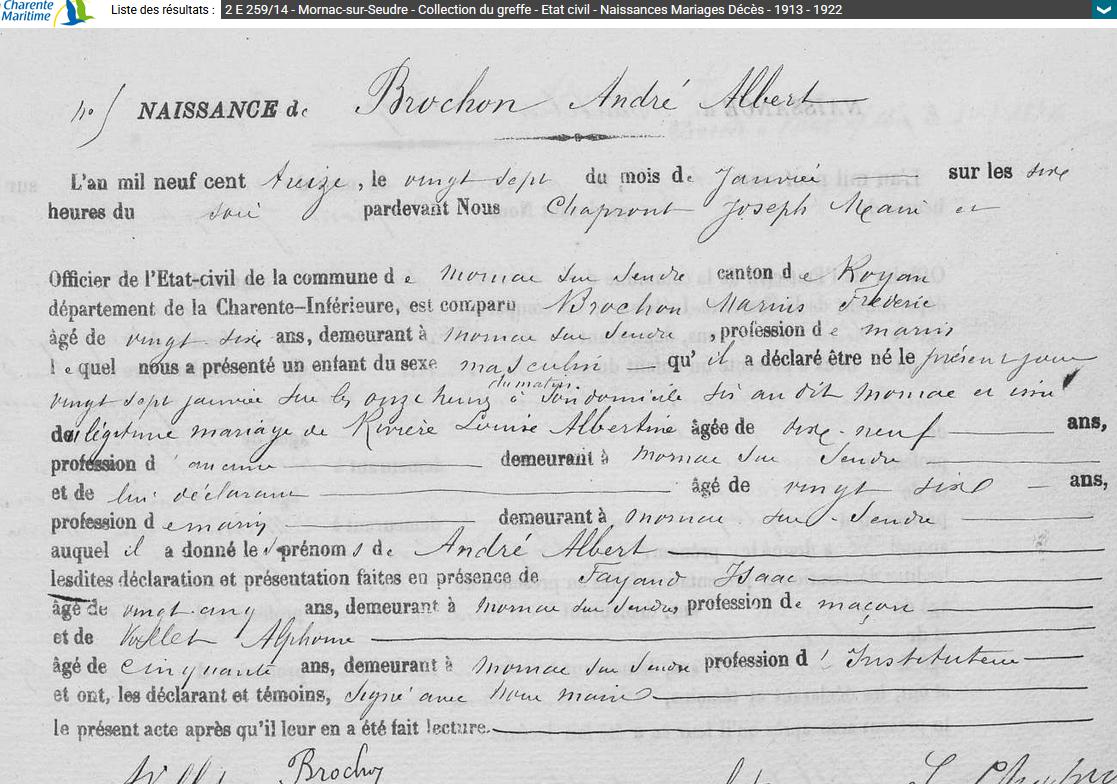 Charente Maritime
Liste des résultats : 2 E 259/14 - Mornac-sur-Seudre - Collection du greffe - Etat civil - Naissances Mariages Décès - 1913 - 1922
NAISSANCE de Brochon André Albert
L'an mil neuf cent treize, le vingt sept du mois de Janvier sur les six
heures du soir pardevant Nous Chapront Joseph Maire et
Officier de l'Etat-civil de la commune de Mornac sur Seudre canton de Royan
département de la Charente-Inférieure, est comparu Brochon Marius Frédéric
âgé de vingt six ans, demeurant à Mornac sur Seudre, profession de marin
lequel nous a présenté un enfant du sexe masculin qu'il a déclaré être né le présent jour
vingt sept janvier sur les onze heures du matin à son domicile sis au dit Mornac et issu
de légitime mariage de Rivière Louise Albertine âgée de dix-neuf ans,
profession d'aucune demeurant à Mornac sur Seudre
et de lui déclarant âgé de vingt six ans,
profession de marin demeurant à Mornac sur Seudre
auquel il a donné les prénoms de André Albert
lesdites déclaration et présentation faites en présence de Fayaud Isaac
âgé de vingt-cinq ans, demeurant à Mornac sur Seudre, profession de maçon
et de Alphonse
âgé de cinquante ans, demeurant à Mornac sur Seudre profession d'Instituteur
et ont, les déclarant et témoins, signé avec Nous maire
le présent acte après qu'il leur en a été fait lecture.
Brochon